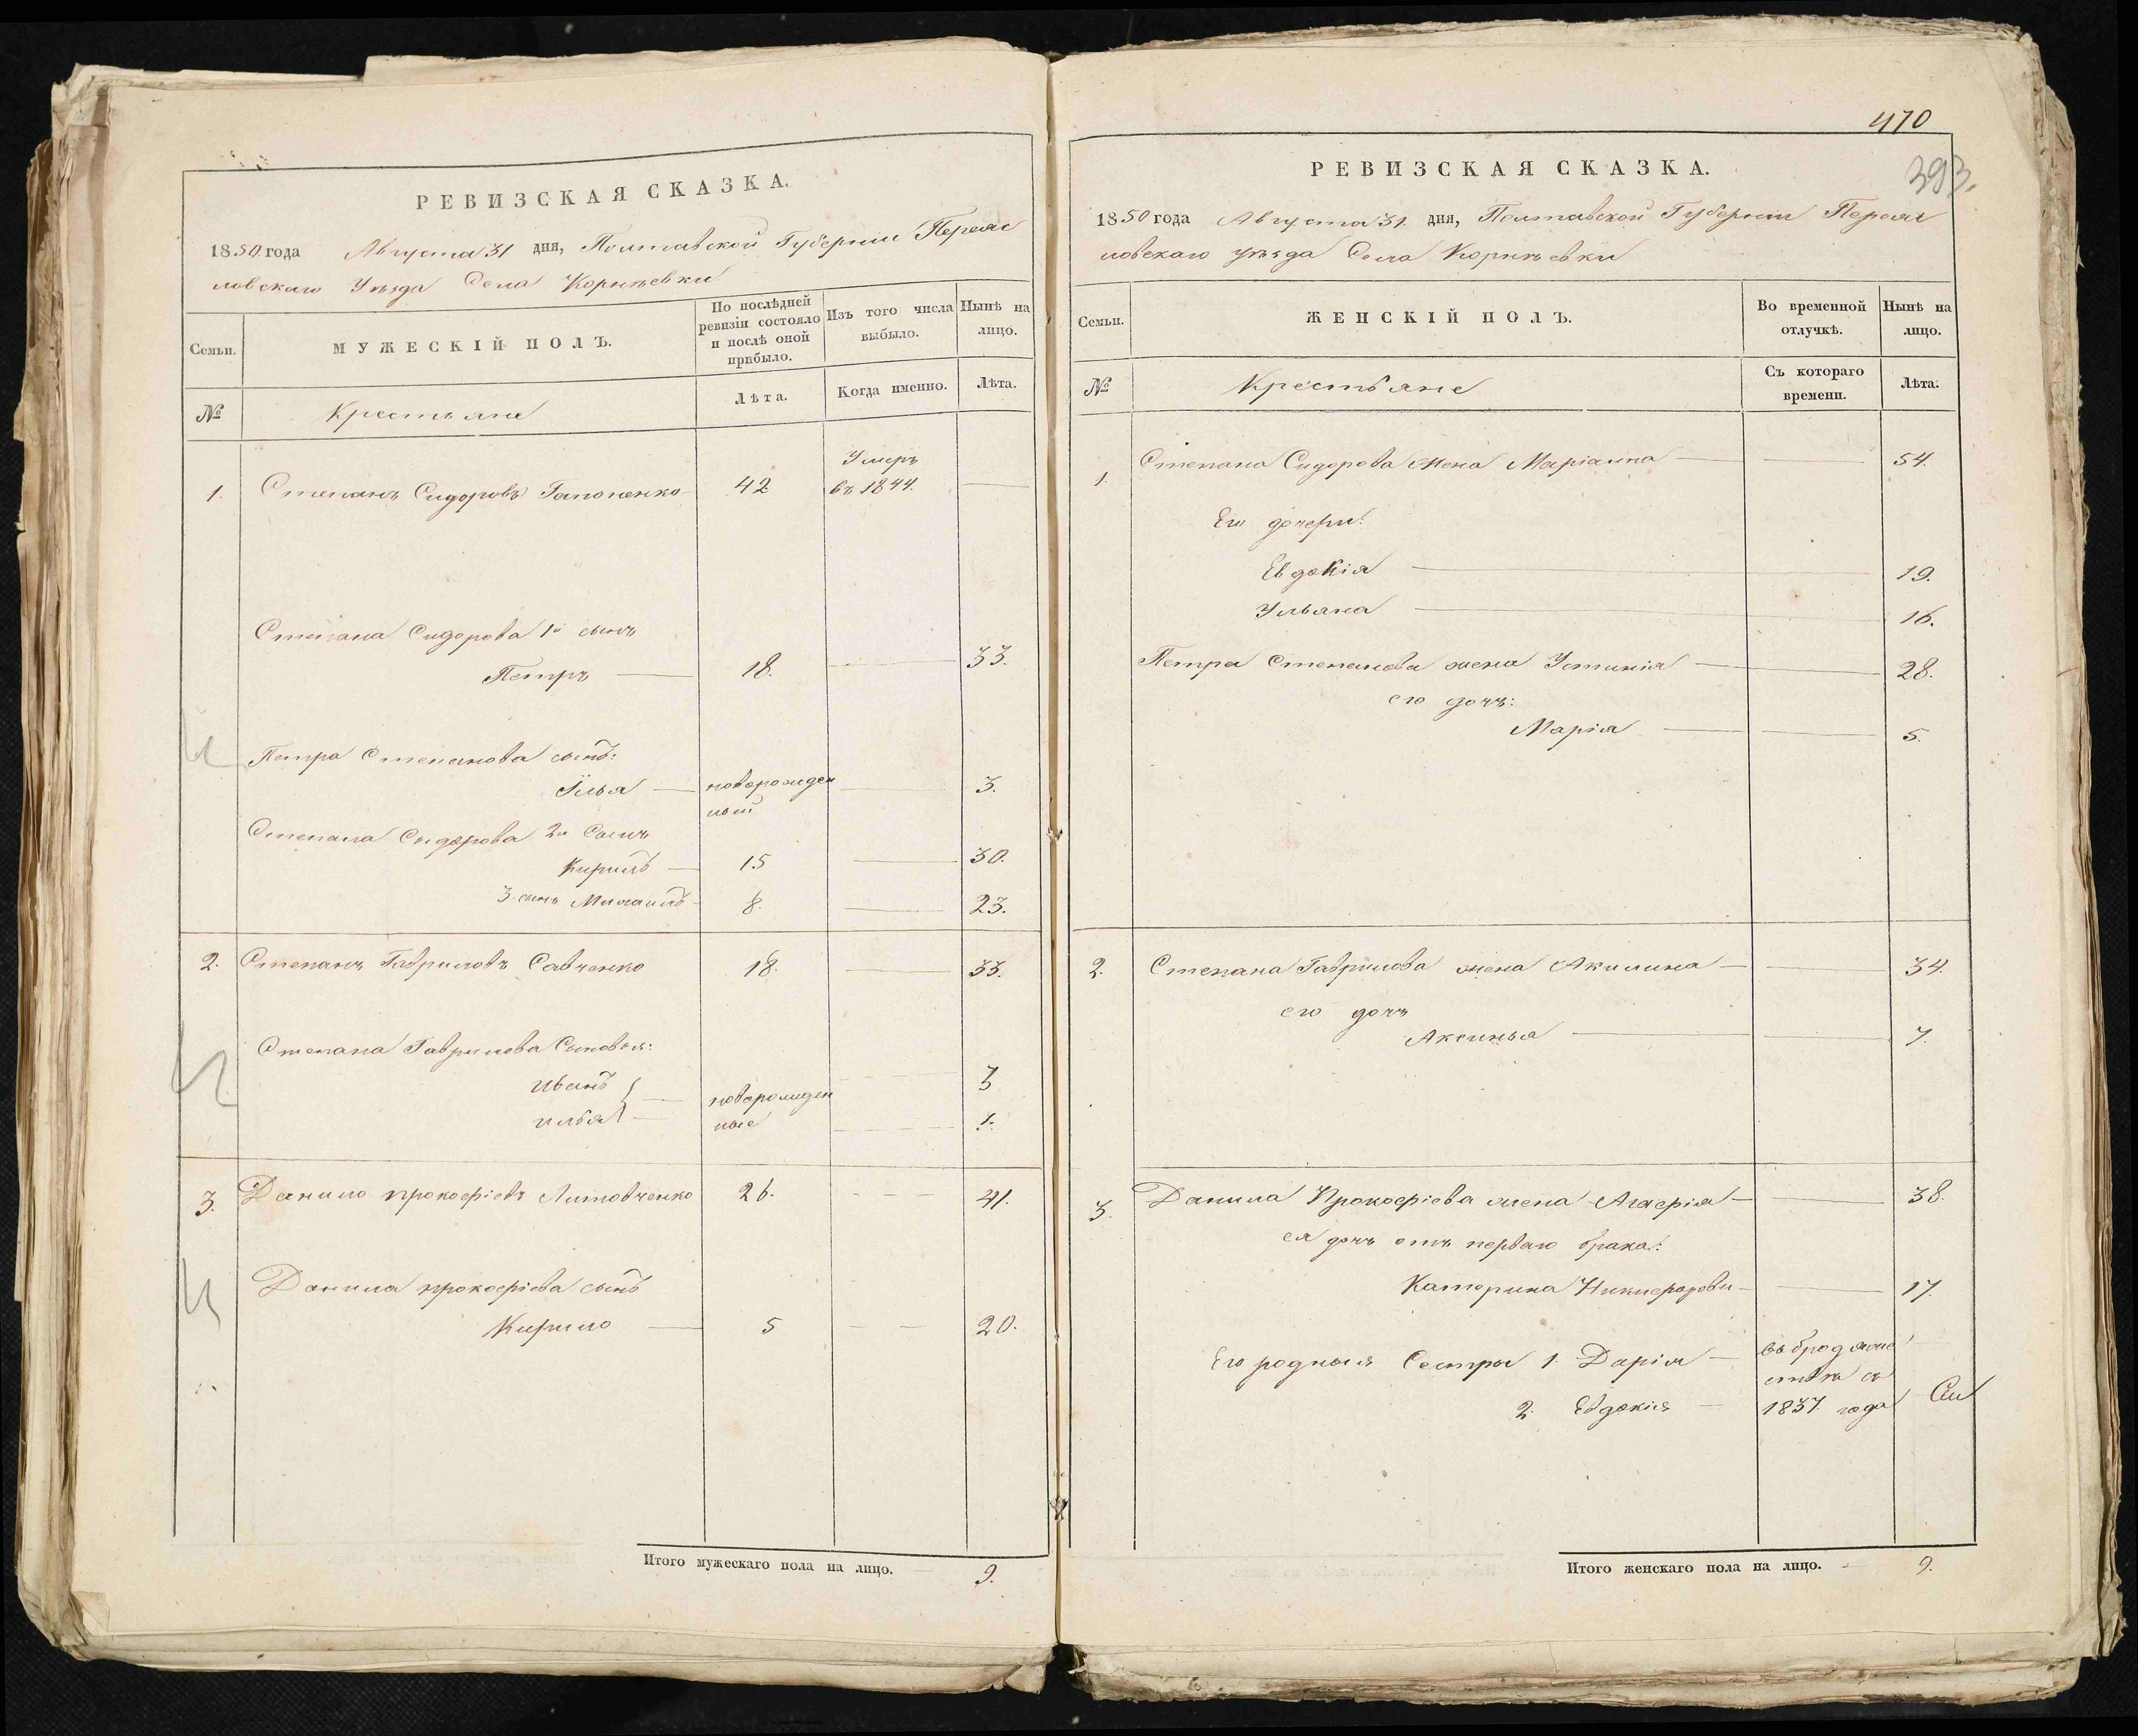 РЕВИЗСКАЯ СКАЗКА.
1850 года Августа 31 дня, Полтавской Губернии Переяс
ловскаго Уѣзда Села Корнѣевки
Семьи.
МУЖЕСКІЙ ПОЛЪ.
По послѣдней
ревизіи состояло
и послѣ оной
прибыло.
Изъ того числа
выбыло.
Нынѣ на
лицо.
№
Крестьяне
Лѣта.
Когда именно.
Лѣта.
1. Степанъ Сидоровъ Гапоненко 42 Умеръ
въ 1844.
Степана Сидорова 1й сынъ
Петръ 18. 33.
Петра Степанова сынъ:
Илья новорожден 3.
ный
Степана Сидорова 2й Сынъ
Кирилъ 15 30.
3. сынъ Михаилъ 8. 23.
2. Степанъ Гавриловъ Савченко 18. 33.
Степана Гаврилова Сыновья:
Иванъ 3
новорожден
илья ные 1.
3. Данило прокофіевъ Литовченко 26. 41.
Данила прокофіева сынъ
Кирило 5 20.
Итого мужескаго пола на лицо. 9.
470
393.
РЕВИЗСКАЯ СКАЗКА.
1850 года Августа 31. дня, Полтавской Губернии Переяс
ловскаго уѣзда Села Корнѣевки
Семьи.
ЖЕНСКІЙ ПОЛЪ.
Во временной
отлучкѣ.
Нынѣ на
лицо.
№
Крестьяне
Съ котораго
времени.
Лѣта.
1. Степана Сидорова жена Маріанна 54.
Его дочери:
Евдокія 19.
Ульяна 16.
Петра Степанова жена Устинія 28.
его дочь:
Марія 5.
2. Степана Гаврилова жена Акилина 34.
его дочь
Аксинья 7.
3. Данила Прокофіева жена Агафія 38.
ея дочь отъ перваго брака:
Катерина Никифорови 17.
Его родныя Сестры 1. Дарія въ бродяже
ствѣ съ
2. Евдокія 1837 года
Итого женскаго пола на лицо. 9.